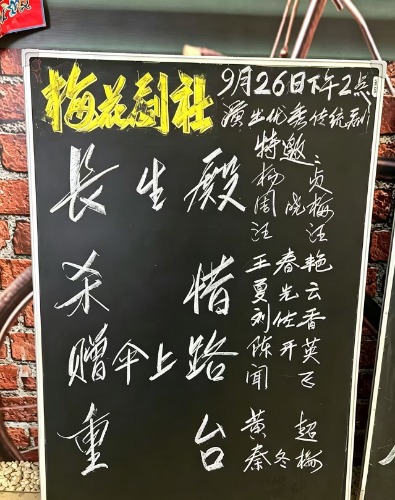 梅花剧社
9月26日下午2点
演出优秀传统剧
特邀:
長生殿
杨 贞
周晓梅
汪 汪
杀惜
王春艳
夏光云
刘仕香
赠伞上路
陈开英
闻 飞
重台
黄 超
秦冬梅